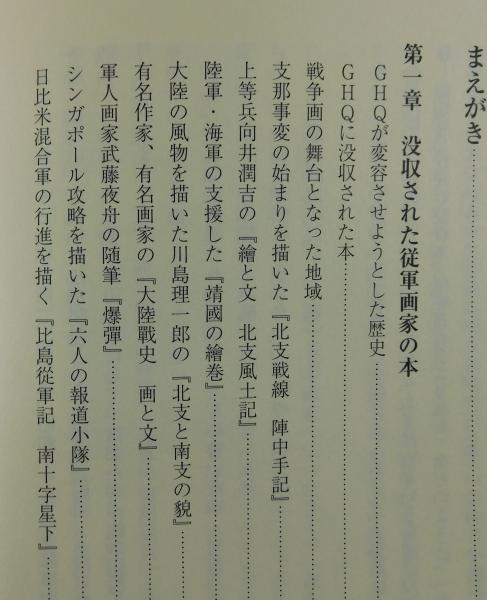 まえがき
第一章 没収された従軍画家の本
GHQが変容させようとした歴史
GHQに没収された本
戦争画の舞台となった地域
支那事変の始まりを描いた『北支戦線 陣中手記』
上等兵向井潤吉の『繪と文 北支風土記』
陸軍・海軍の支援した『靖國の繪巻』
大陸の風物を描いた川島理一郎の『北支と南支の貌』
有名作家、有名画家の『大陸戰史 画と文』
軍人画家武藤夜舟の随筆『爆彈』
シンガポール攻略を描いた『六人の報道小隊』
日比米混合軍の行進を描く『比島從軍記 南十字星下』